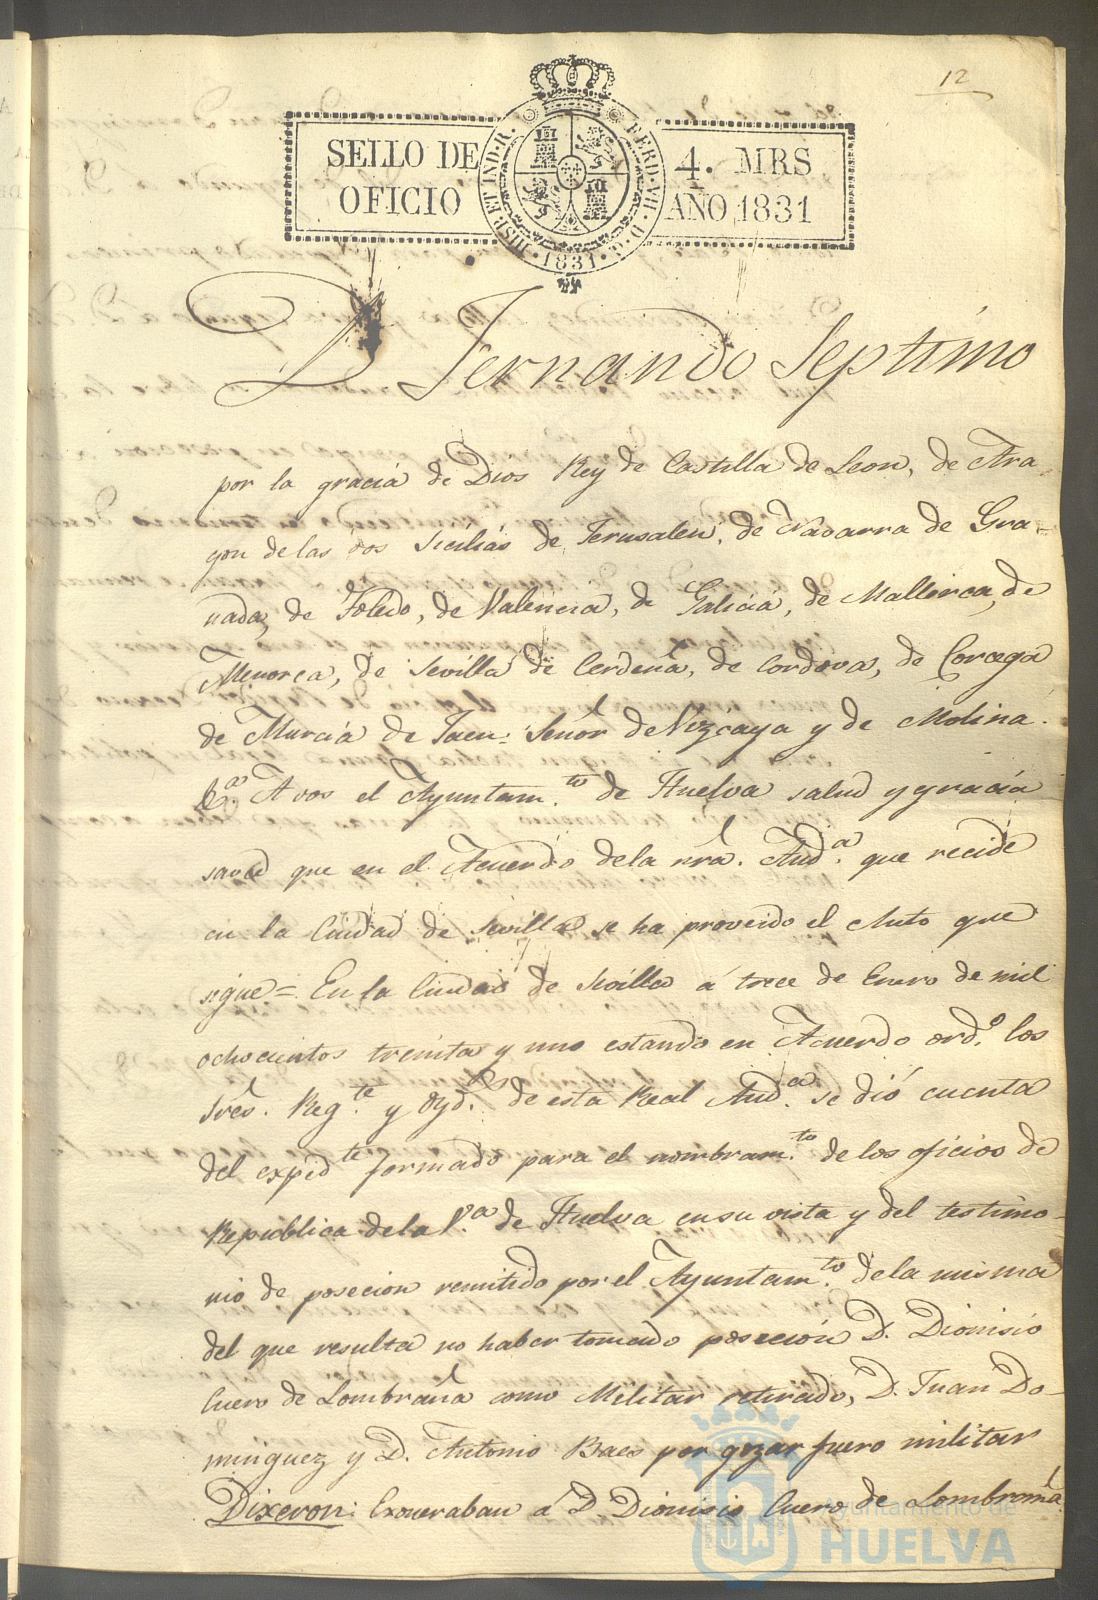 12
SELLO DE
OFICIO
HISP. ET IND. R.
FERD. VII. D. G.
·1831·
4. MRS
AÑO 1831
D. Fernando Septimo
por la gracia de Dios Rey de Castilla de Leon, de Ara-
gon de las dos Sicilias de Jerusalen, de Navarra de Gra-
nada, de Toledo, de Valencia, de Galicia, de Mallorca, de
Menorca, de Sevilla de Cerdeña, de Cordova, de Corcega
de Murcia de Jaen: Señor de Vizcaya y de Molina.
&.a A vos el Ayuntam.to de Huelva salud y gracia
saved que en el Acuerdo de la nrã. Aud.a que recide
en la Ciudad de Sevilla se ha proveido el Auto que
sigue = En la Ciudad de Sevilla á trece de Enero de mil
ochocientos treinta y uno estando en Acuerdo ord.o los
Sres. Reg.te y Oyd.es de esta Real Aud.a se dió cuenta
del exped.te formado para el nombram.to de los oficios de
Republica de la V.a de Huelva en su vista y del testimo-
nio de posecion remitido por el Ayuntam.to de la misma
del que resulta no haber tomado posecion D. Dionisio
Cuero de Lombraña como Militar retirado, D. Juan Do-
minguez y D. Antonio Baes por gozar fuero militar
Dixeron: Exoneraban á D. Dionisio Cuero de Lombraña
Ayuntamiento de
HUELVA